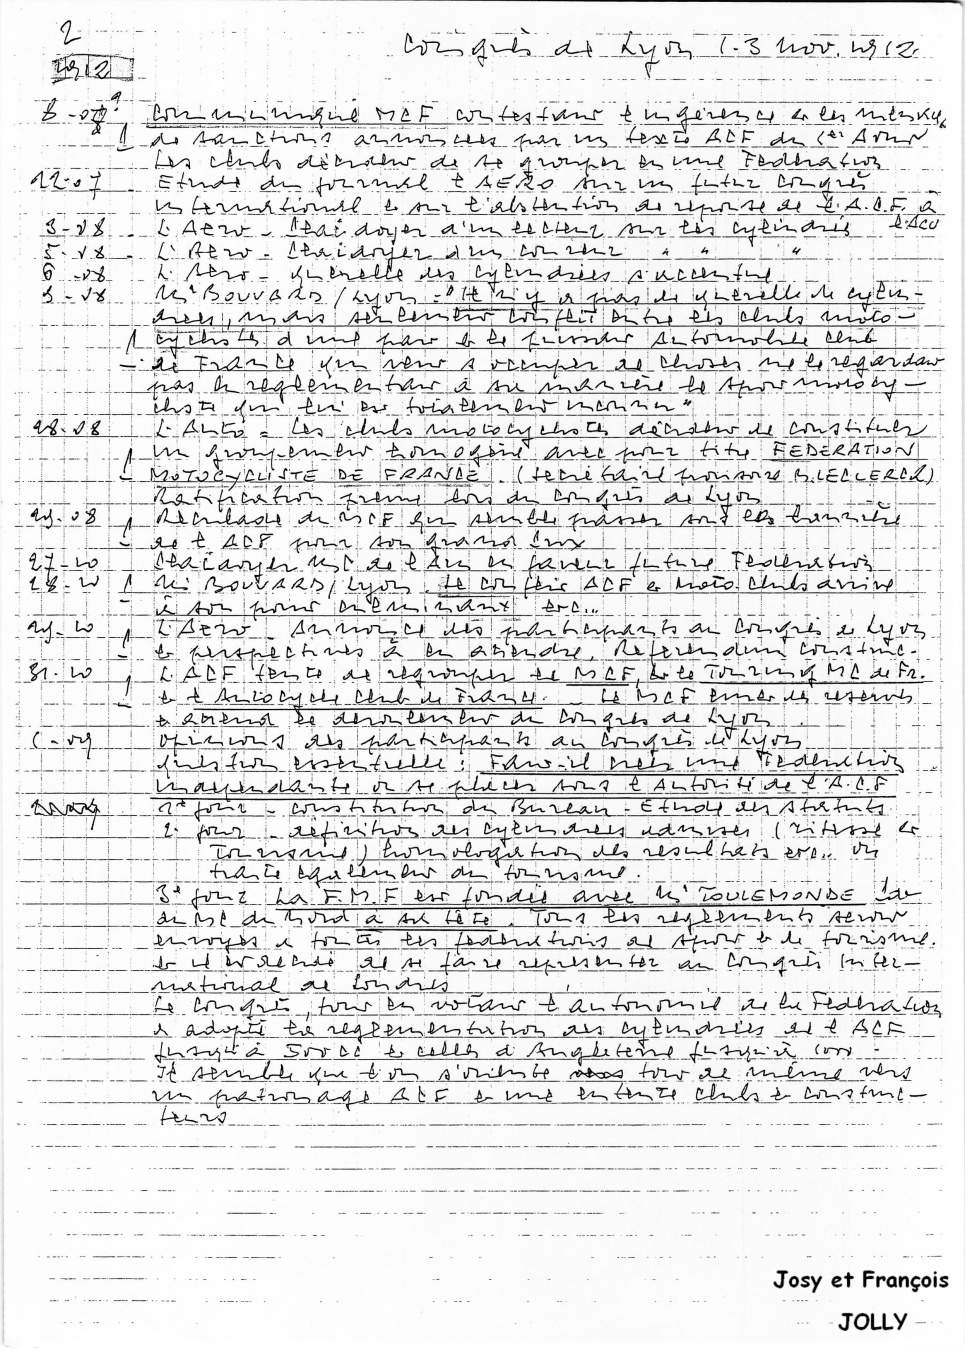 2
Congrès de Lyon 1-3 nov. 1912
1912
8-07 Communiqué MCF contestant l'ingérence et les menaces
de sanctions annoncées par un texte ACF du 1er Aout
Les clubs décident de se grouper en une Federation
12-07 Etude du journal l'AERO sur un futur Congrès
international et sur l'abstention de reponse de l'A.C.F. à
l'ACU
3-08 L'Aero - Plaidoyer d'un lecteur sur les cylindrées
5-08 L'Aero - Plaidoyer d'un coureur " " "
6-08 L'Aero - querelle des cylindrées s'accentue
9-08 Mr BOUVARD/Lyon - "Il n'y a pas de querelle de cylin-
drées, mais seulement conflit entre les clubs moto-
cyclistes d'une part et le puissant Automobile Club
de France qui veut s'occuper de choses ne le regardant
pas en reglementant à sa manière le sport motocy-
cliste qui lui est totalement inconnu"
28-08 L'Auto - Les clubs motocyclistes décident de constituer
un groupement homogène avec pour titre FEDERATION
MOTOCYCLISTE DE FRANCE. (Secrétaire provisoire LECLERCQ)
Ratification prévue lors du Congrès de Lyon
29-08 Reculade du MCF qui semble passer sous les bannière
de l'ACF pour son grand Prix
27-10 Plaidoyer MC de l'Ain en faveur future Federation
28-10 Mr BOUVARD/Lyon. Le conflit ACF et Moto-clubs arrive
à son point culminant etc...
29-10 L'Aero. Annonce des participants au Congrès de Lyon
et perspectives à en attendre, Referendum construc.
31-10 L'ACF tente de regrouper le MCF, et le Touring MC de Fr.
et l'Autocycle Club de France. Le MCF emet des reserves
et attend le deroulement du Congrès de Lyon
1-09 opinions des participants au Congrès de Lyon
question essentielle: Faut-il créer une Federation
independante ou se placer sous l'Autorité de l'A.C.F
1e jour - constitution du Bureau - Etude des statuts
2e jour - définition des cylindrées admises (vitesse et
Tourisme) homologation des resultats etc.. on
traite egalement du tourisme.
3e jour La F.M.F est fondée avec Mr TOULEMONDE
du MC du Nord à sa tête. Tous les reglements seront
envoyés à toutes les federations de sport et de tourisme.
et il est decidé de se faire representer au Congrès Inter-
national de Londres
Le Congrès, tout en votant l'autonomie de la Federation
a adopté la reglementation des cylindrées de l'ACF
jusqu'à 500 cc et celles d'Angleterre jusqu'à 1000 -
Il semble que l'on s'oriente tout de même vers
un patronage ACF et une entente clubs et construc-
teurs
Josy et François
JOLLY